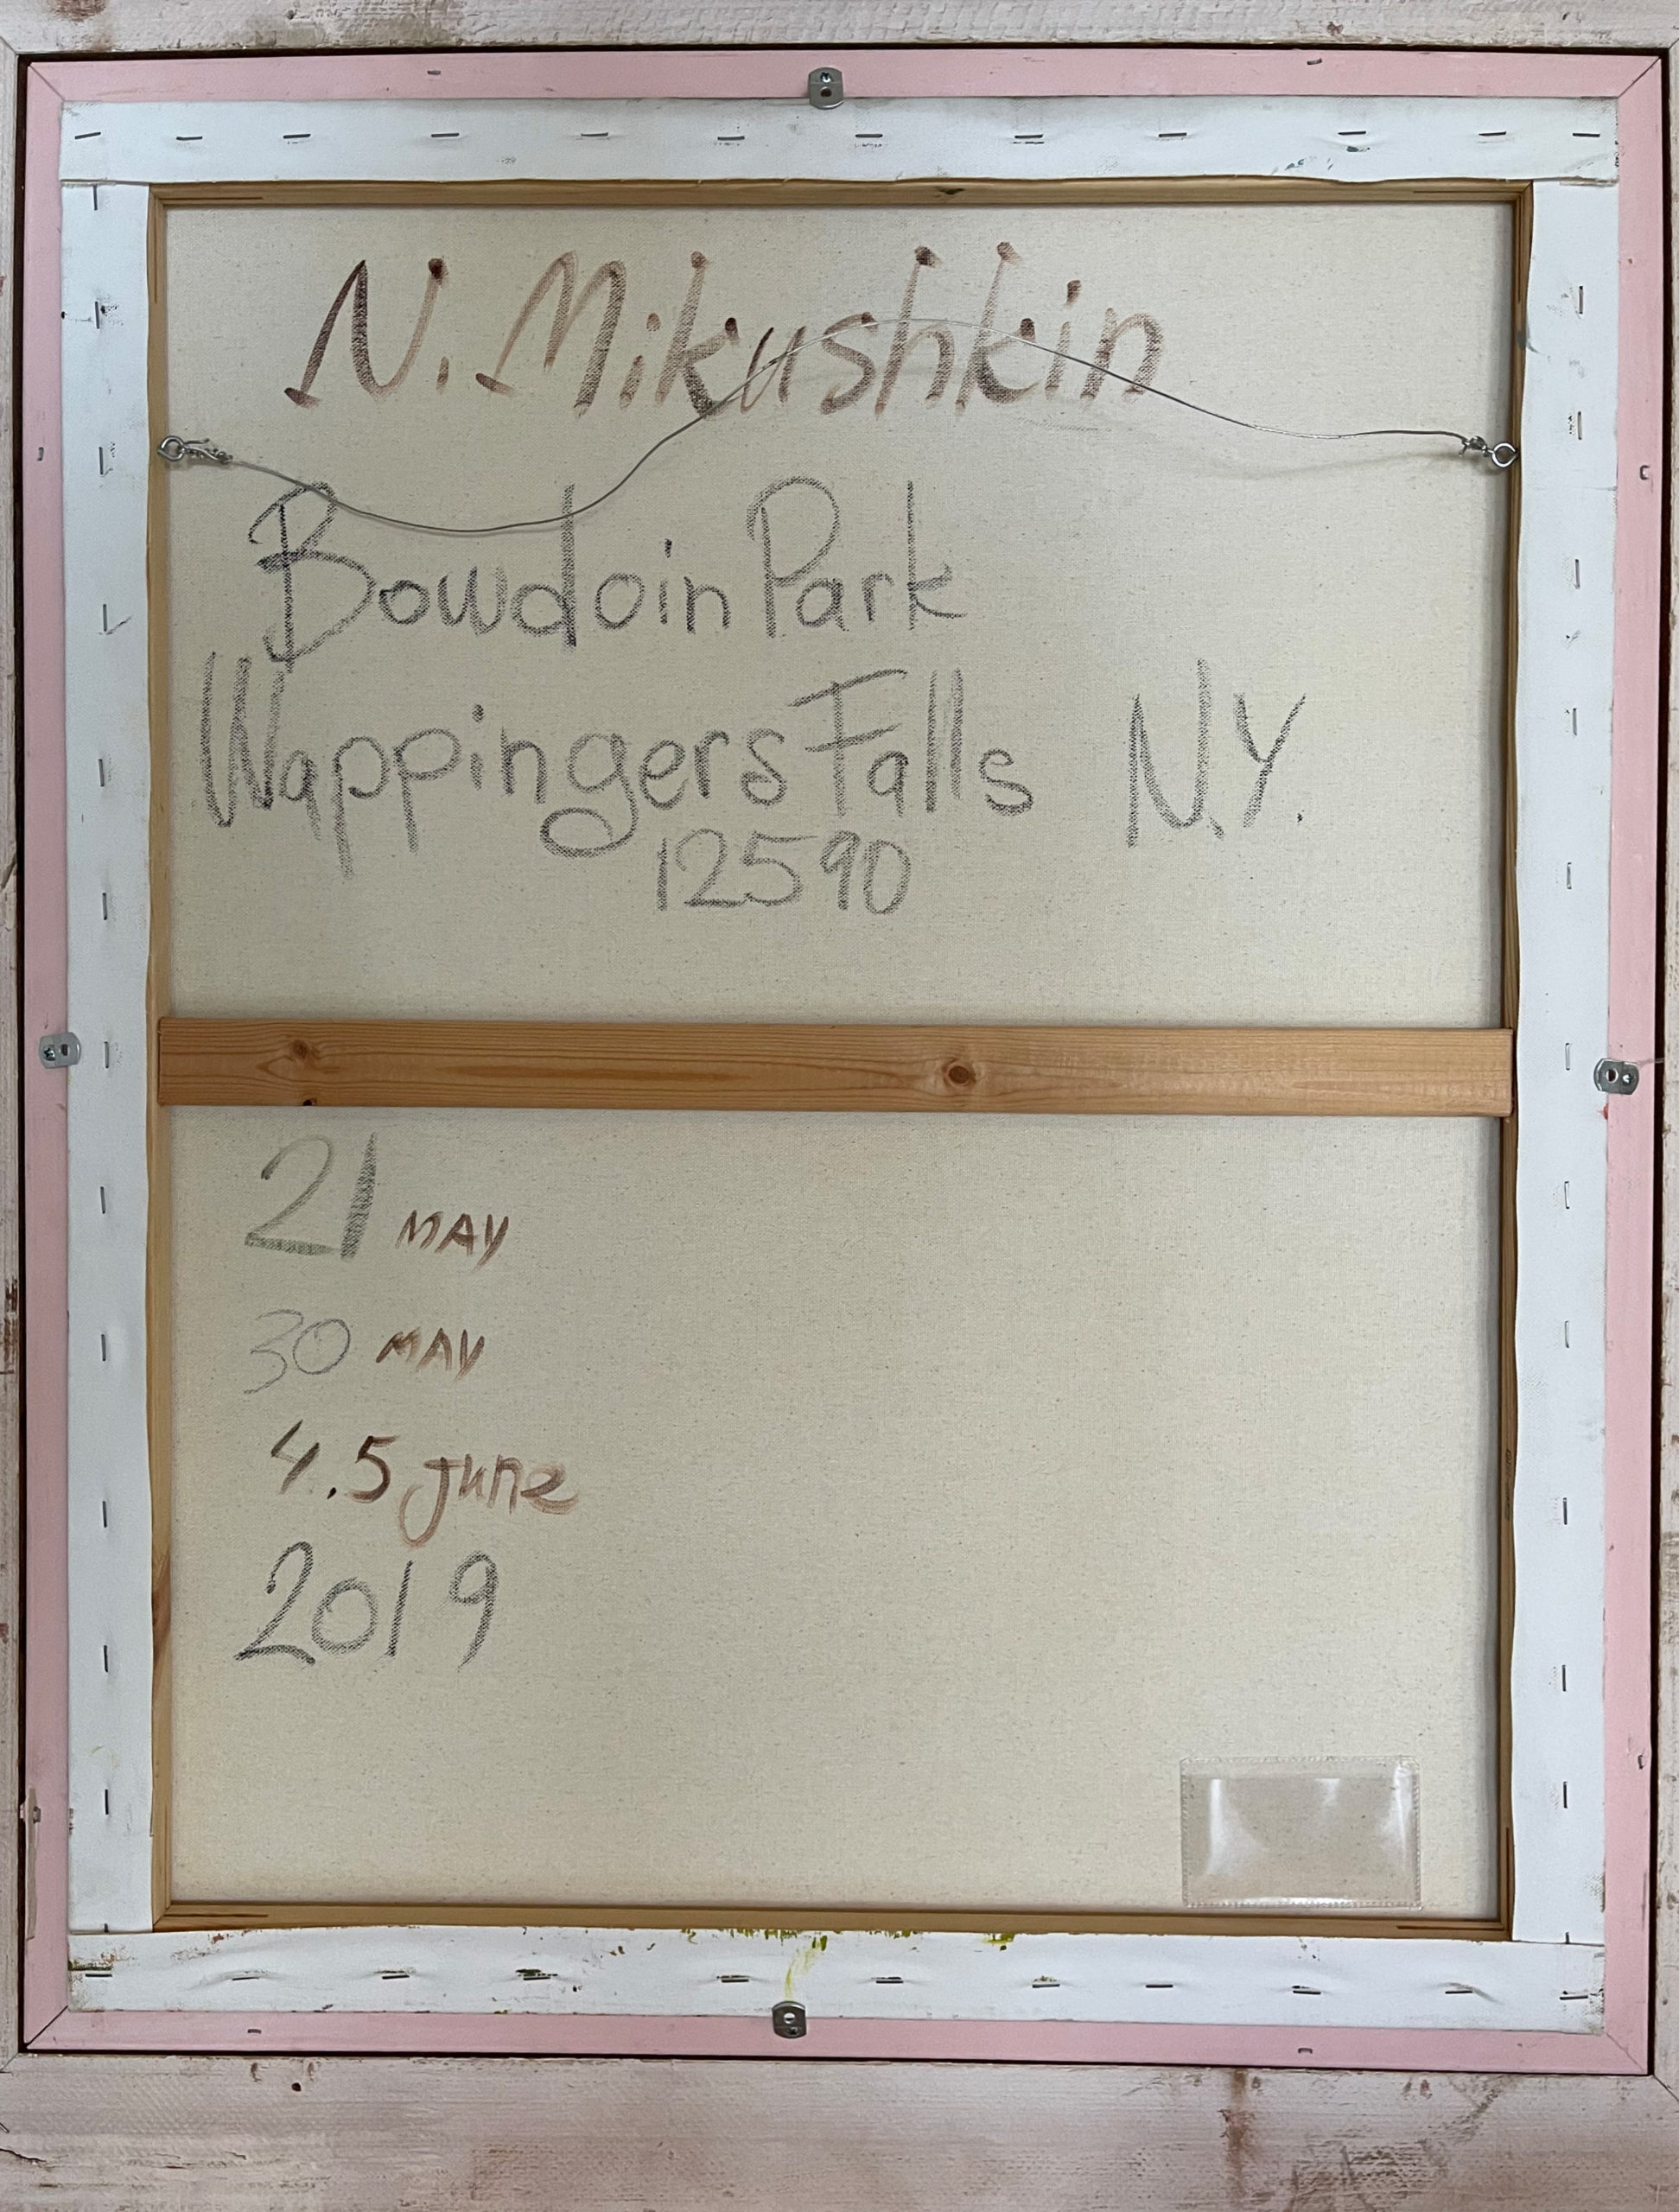 N. Mikushkin
Bowdoin Park
Wappingers Falls N.Y.
12590
21 MAY
30 MAY
4.5 june
2019